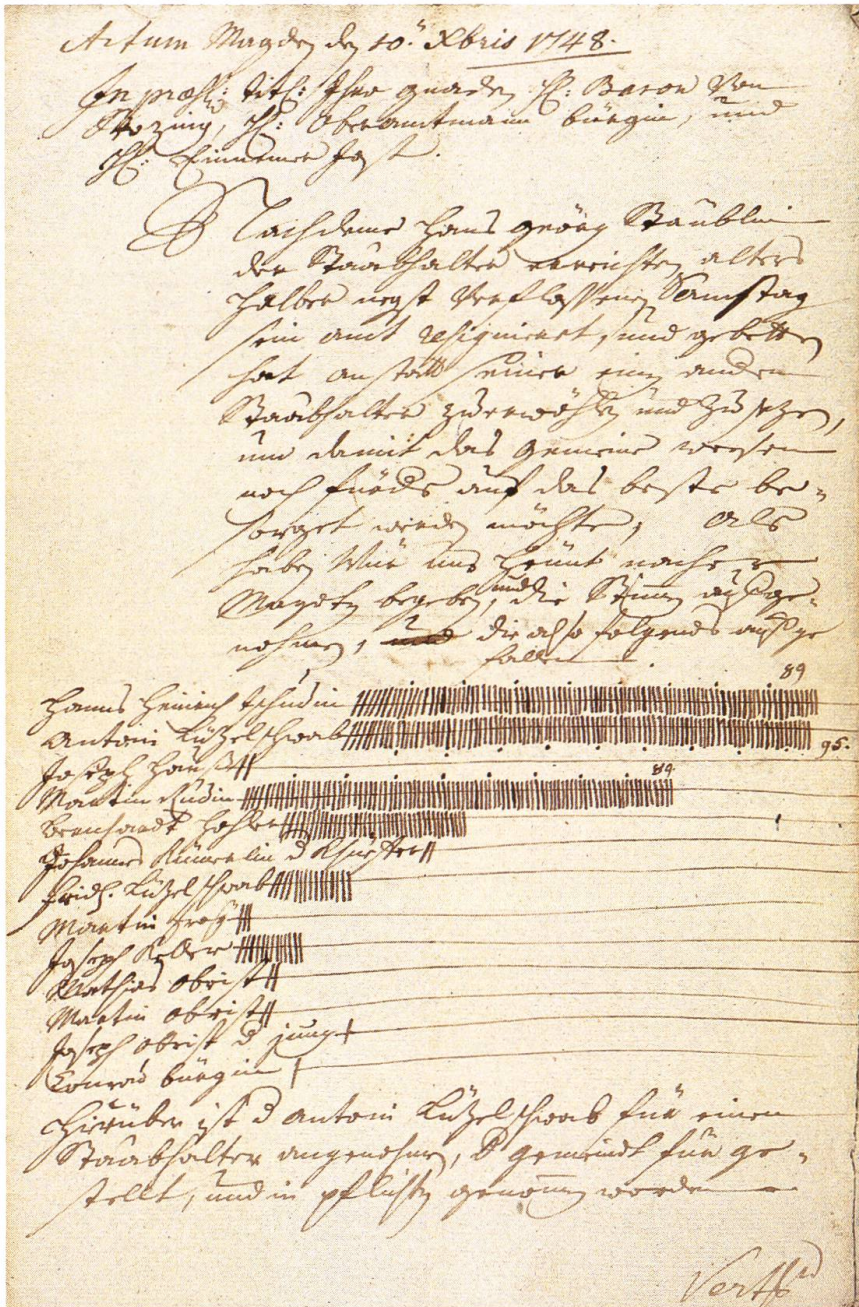 Actum Magden den 10.ᵗ Xbris 1748.
In præs: titl: Ihro gnaden H: Baron von
Stozing, H: Oberamtmann bürgin, und
H: Einnemer Jost.
Nachdeme Hans geörg Stäublin
der Staabhalter alters
halber negst verflossenen Sambstag
sein amt resigniert, und gebetten
hat anstatt seiner einen andern
Staabhalter zuerwöhlen und zu sezen,
um damit das gemeine weesen
noch auf das beste be-
sorget werden möchte, Als
haben Wür uns heünt nacher
Magden begeben, und die Stimmen aufge-
nohmen, die also folgends aussge
fallen
89
Hanns Heinrich tschudin
Antoni Lüzelschwab
95.
Joseph
Martin Rudin
84
bernhardt Hohler
Johannes
Fridl. Lüzelschwab
Martin Frey
Joseph Keller
Mathias obrist
Martin obrist
Joseph obrist d jung
Conrad bürgin
Hierüber ist d Antoni Lüzelschwab für einen
Staabhalter angenohmen, d gemeindt für ge-
stellt, und in pflichten genommen worden